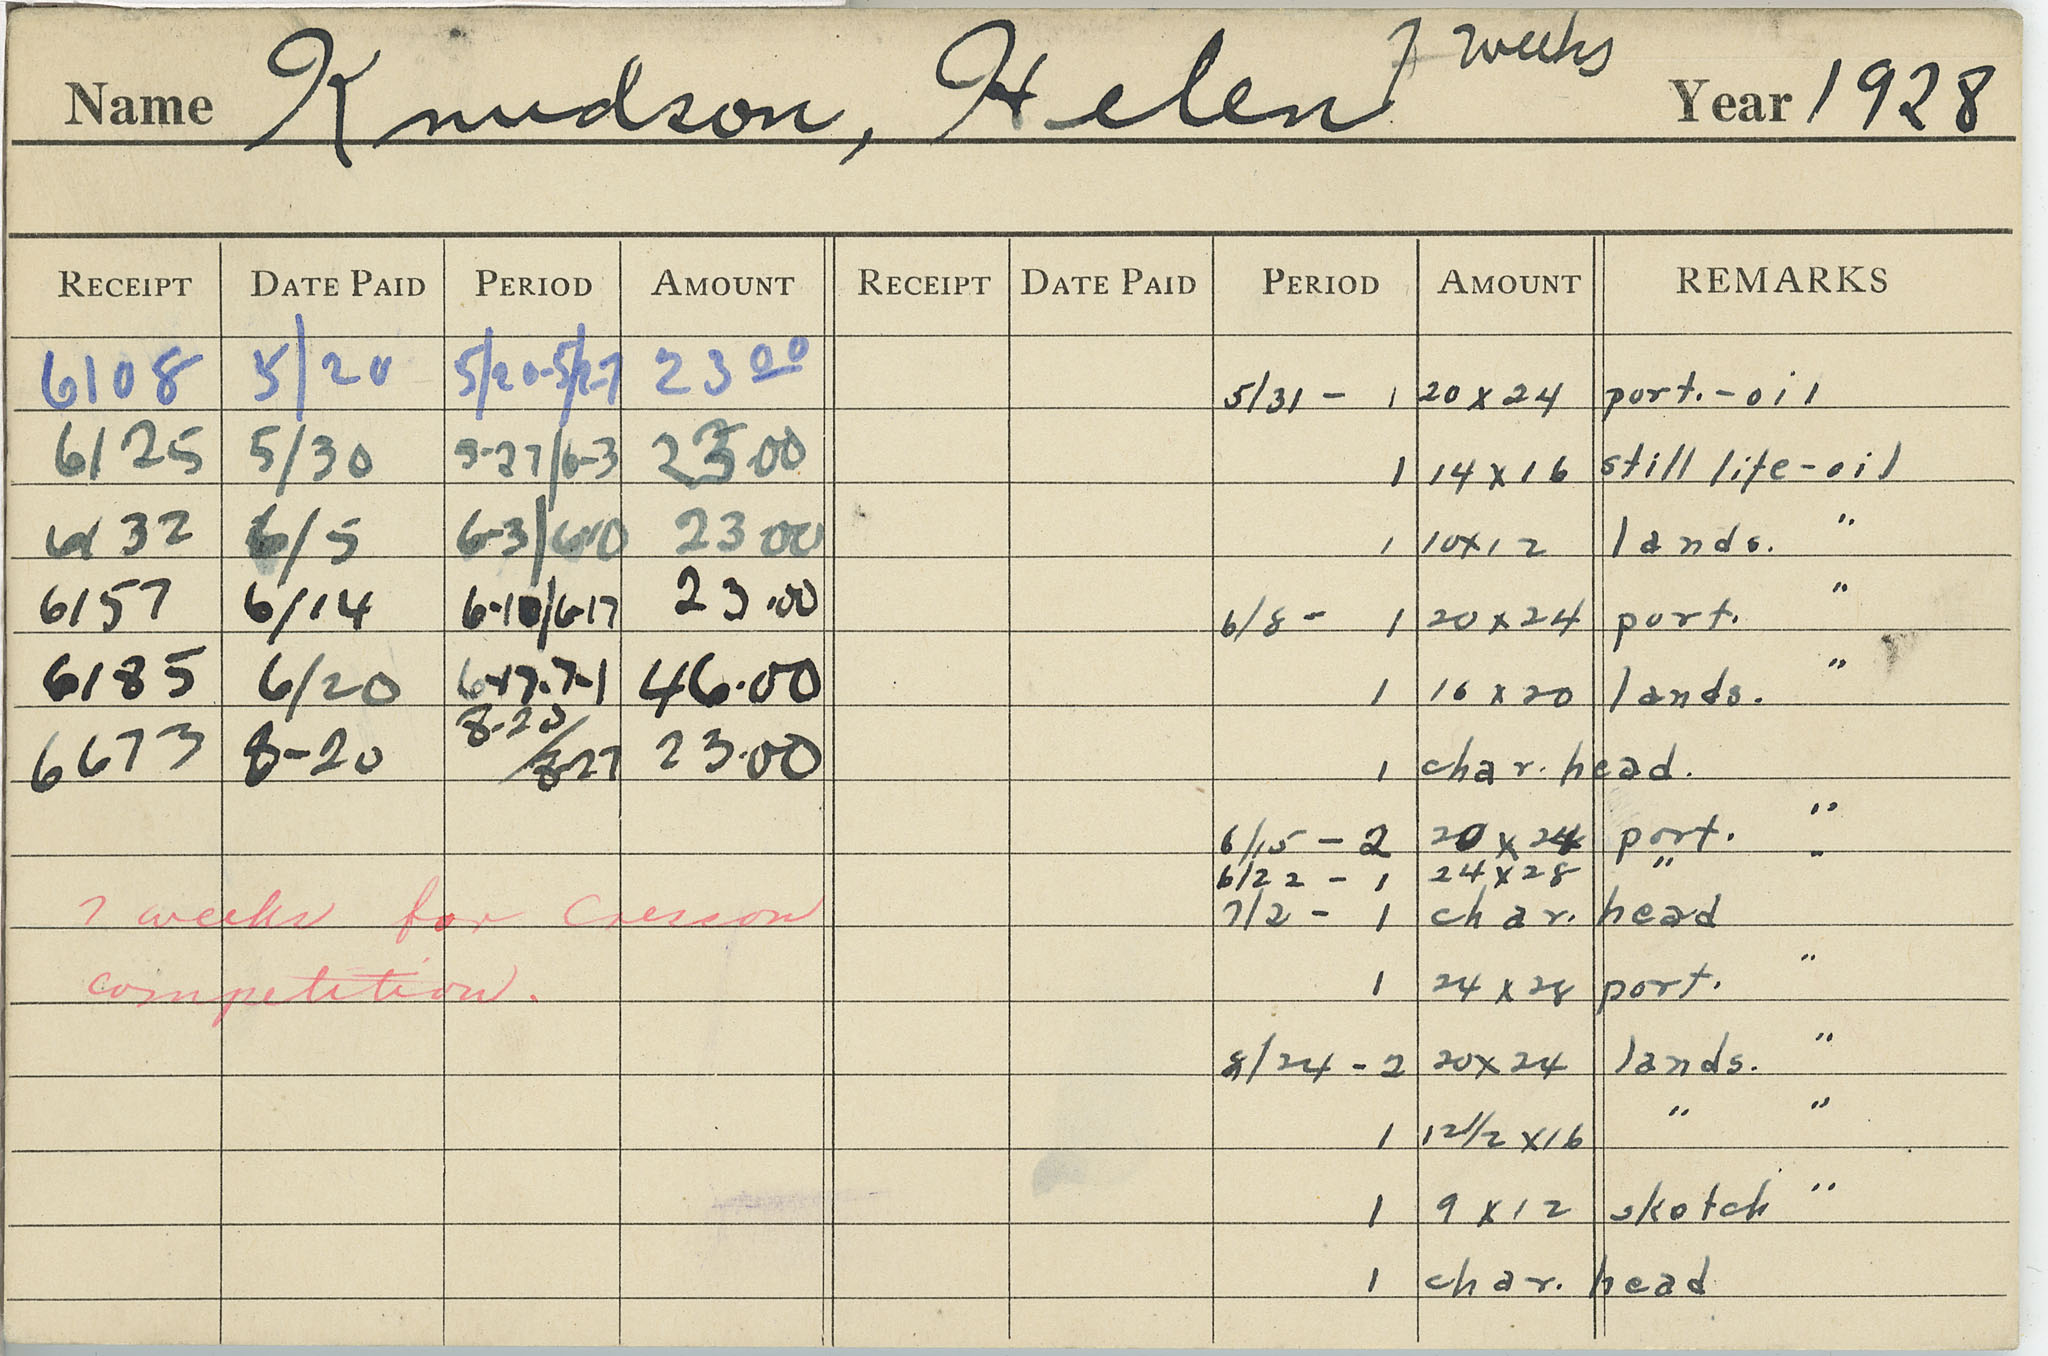 Name Knudson, Helen 7 weeks Year 1928
RECEIPT DATE PAID PERIOD AMOUNT RECEIPT DATE PAID PERIOD AMOUNT REMARKS
6108 5/20 5/20-5/27 23 00
5/31 - 1 20 x 24 port. - oil
6125 5/30 5-27/6-3 23.00
1 14 x 16 still life - oil
6132 6/5 6-3/6-10 23.00
1 10x12 lands. "
6157 6/14 6-10/6-17 23.00
6/8 - 1 20 x 24 port. "
6185 6/20 6-17-7-1 46.00
1 16 x 20 lands. "
6673 8-20 8-20/8-27 23.00
1 char. head.
6/15 - 2 20 x 24 port. "
6/22 - 1 24 x 28 " "
7 weeks for Cresson
7/2 - 1 char. head
competition.
1 24 x 28 port. "
8/24 - 2 20 x 24 lands. "
1 12 1/2 x 16 " "
1 9 x 12 sketch "
1 char. head